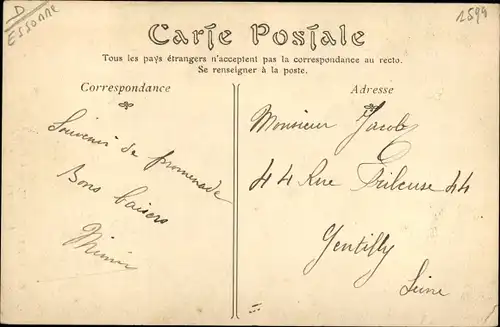 D
ESSONNE
2599
Carte Postale
Tous les pays étrangers n'acceptent pas la correspondance au recto.
Se renseigner à la poste.
Correspondance
Souvenir de promenade
Bons baisers
Mimi
Adresse
Monsieur Jacob
44 Rue Frileuse 44
Gentilly
Seine